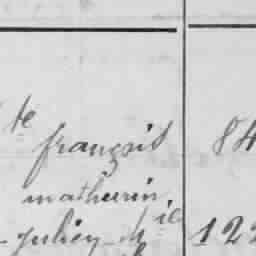 te
françois 84
mathurin
julien M ie 122